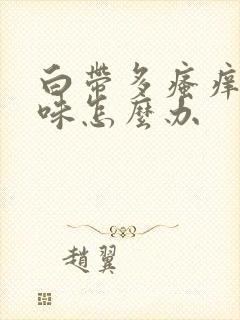 白帶多瘙痒
味怎麼办
趙翼